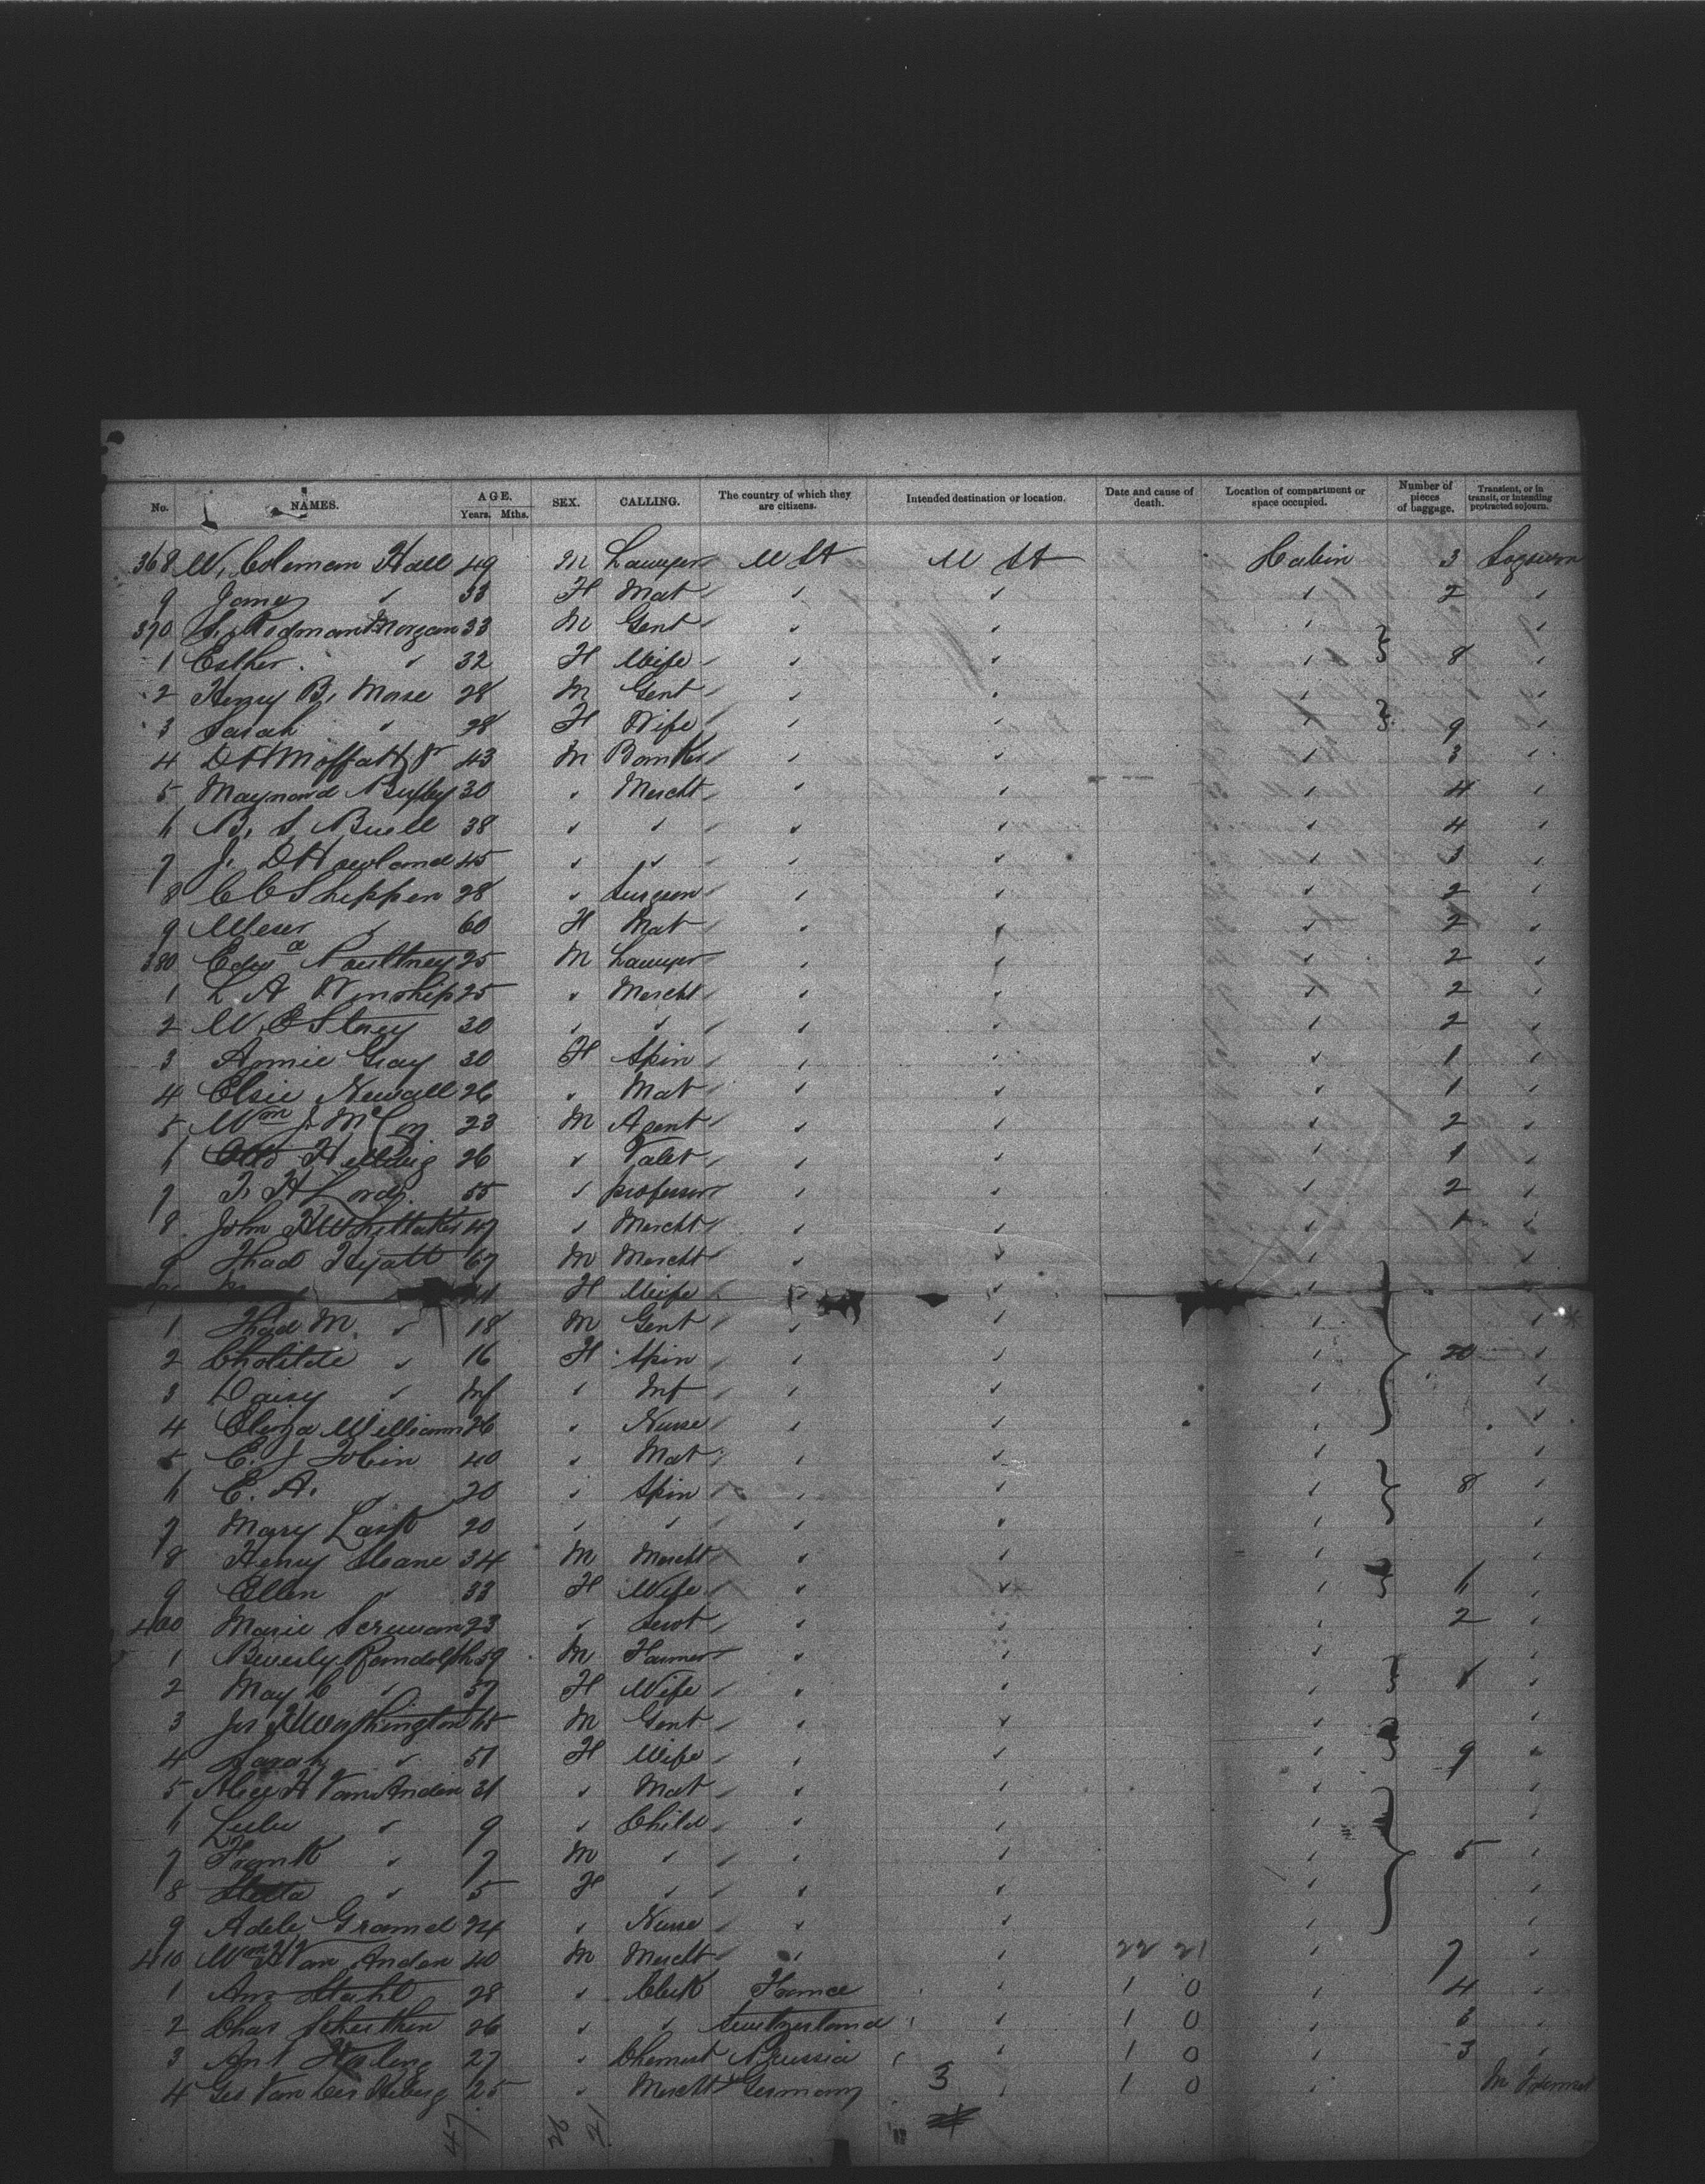 No. NAMES. AGE. Years. Mths. SEX. CALLING. The country of which they are citizens. Intended destination or location. Date and cause of death. Location of compartment or space occupied. Number of pieces of baggage. Transient, or in transit, or intending protracted sojourn.
368 W. Coleman Hall 49 M Lawyer U St U St Cabin 3
9 〃 33 F Mat 〃 〃 〃 2 〃
370 Morgan 33 M Gent 〃 〃 〃 〃
1 Esther 〃 32 F Wife 〃 〃 〃 } 8 〃
2 Henry B. Morse 28 M Gent 〃 〃 〃 〃
3 Sarah 〃 28 F Wife 〃 〃 〃 } 9 〃
4 D H Moffatt Jr 43 M Banker 〃 〃 〃 3 〃
5 Maynard Bixby 30 〃 Mercht 〃 〃 〃 4 〃
6 B. S. Buell 38 〃 〃 〃 〃 〃 4 〃
7 J. D Howland 45 〃 〃 〃 〃 〃 3 〃
8 C C Shippen 28 〃 Surgeon 〃 〃 〃 2 〃
9 〃 60 F Mat 〃 〃 〃 2 〃
380 Poultney 25 M Lawyer 〃 〃 〃 2 〃
1 L A Winship 25 〃 Mercht 〃 〃 〃 2 〃
2 W. E Storey 30 〃 〃 〃 〃 〃 2 〃
3 Annie Gray 30 F Spin 〃 〃 〃 1 〃
4 Elsie Newall 26 〃 Mat 〃 〃 〃 1 〃
5 Wm J. McCoy 23 M Agent 〃 〃 〃 2 〃
6 Otto Hellwig 26 〃 Valet 〃 〃 〃 1 〃
7 T. H Lord 55 〃 professor 〃 〃 〃 2 〃
8 John H Whittaker 47 〃 Mercht 〃 〃 〃 1 〃
9 Thad Hyatt 67 M Mercht 〃 〃 〃
F Wife 〃 〃 〃
1 Thad M. 〃 18 M Gent 〃 〃 〃 〃
2 Cholilde 〃 16 F Spin 〃 〃 〃 } 20 〃
3 Daisy 〃 Inf 〃 Inf 〃 〃 〃 〃
4 Eliza William 26 〃 Nurse 〃 〃 〃 〃
5 E. J Tobin 40 〃 Mat 〃 〃 〃 〃
6 E. A. 〃 20 〃 Spin 〃 〃 〃 } 8 〃
7 Mary Lask 20 〃 〃 〃 〃 〃 〃
8 Henry Sloane 34 M Mercht 〃 〃 〃 〃
9 Ellen 〃 33 F Wife 〃 〃 〃 } 6 〃
400 Marie 23 〃 Servt 〃 〃 〃 2 〃
1 Beverly Randolph 59 M Farmer 〃 〃 〃 〃
2 May C 〃 57 F Wife 〃 〃 〃 } 〃
3 Jas A Washington 65 M Gent 〃 〃 〃 〃
4 Sarah 〃 51 F Wife 〃 〃 〃 } 9 〃
5 Alice H Van Anden 31 〃 Mat 〃 〃 〃 〃
6 Lulu 〃 9 〃 Child 〃 〃 〃 〃
7 Frank 〃 7 M 〃 〃 〃 〃 } 5 〃
8 Stella 〃 5 F 〃 〃 〃 〃 〃
9 Adele Gramd 24 〃 Nurse 〃 〃 〃 〃
410 Wm H Van Anden 40 M Mercht 〃 〃 22 21 〃 7 〃
1 28 〃 Clerk France 〃 1 0 〃 4 〃
2 Chas 26 〃 〃 Switzerland 〃 1 0 〃 3 〃
3 27 〃 Chemist Prussia 〃 1 0 〃 3 〃
4 Geo Van 25 〃 Mercht Germany 3 〃 1 0 〃
47 26 21